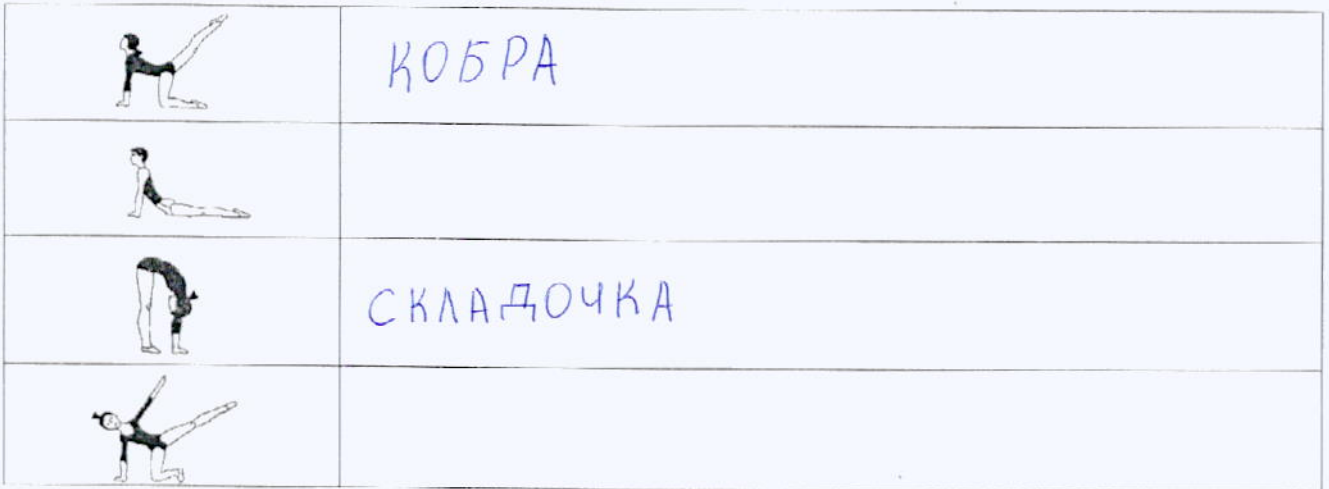 КОБРА
СКЛАДОЧКА